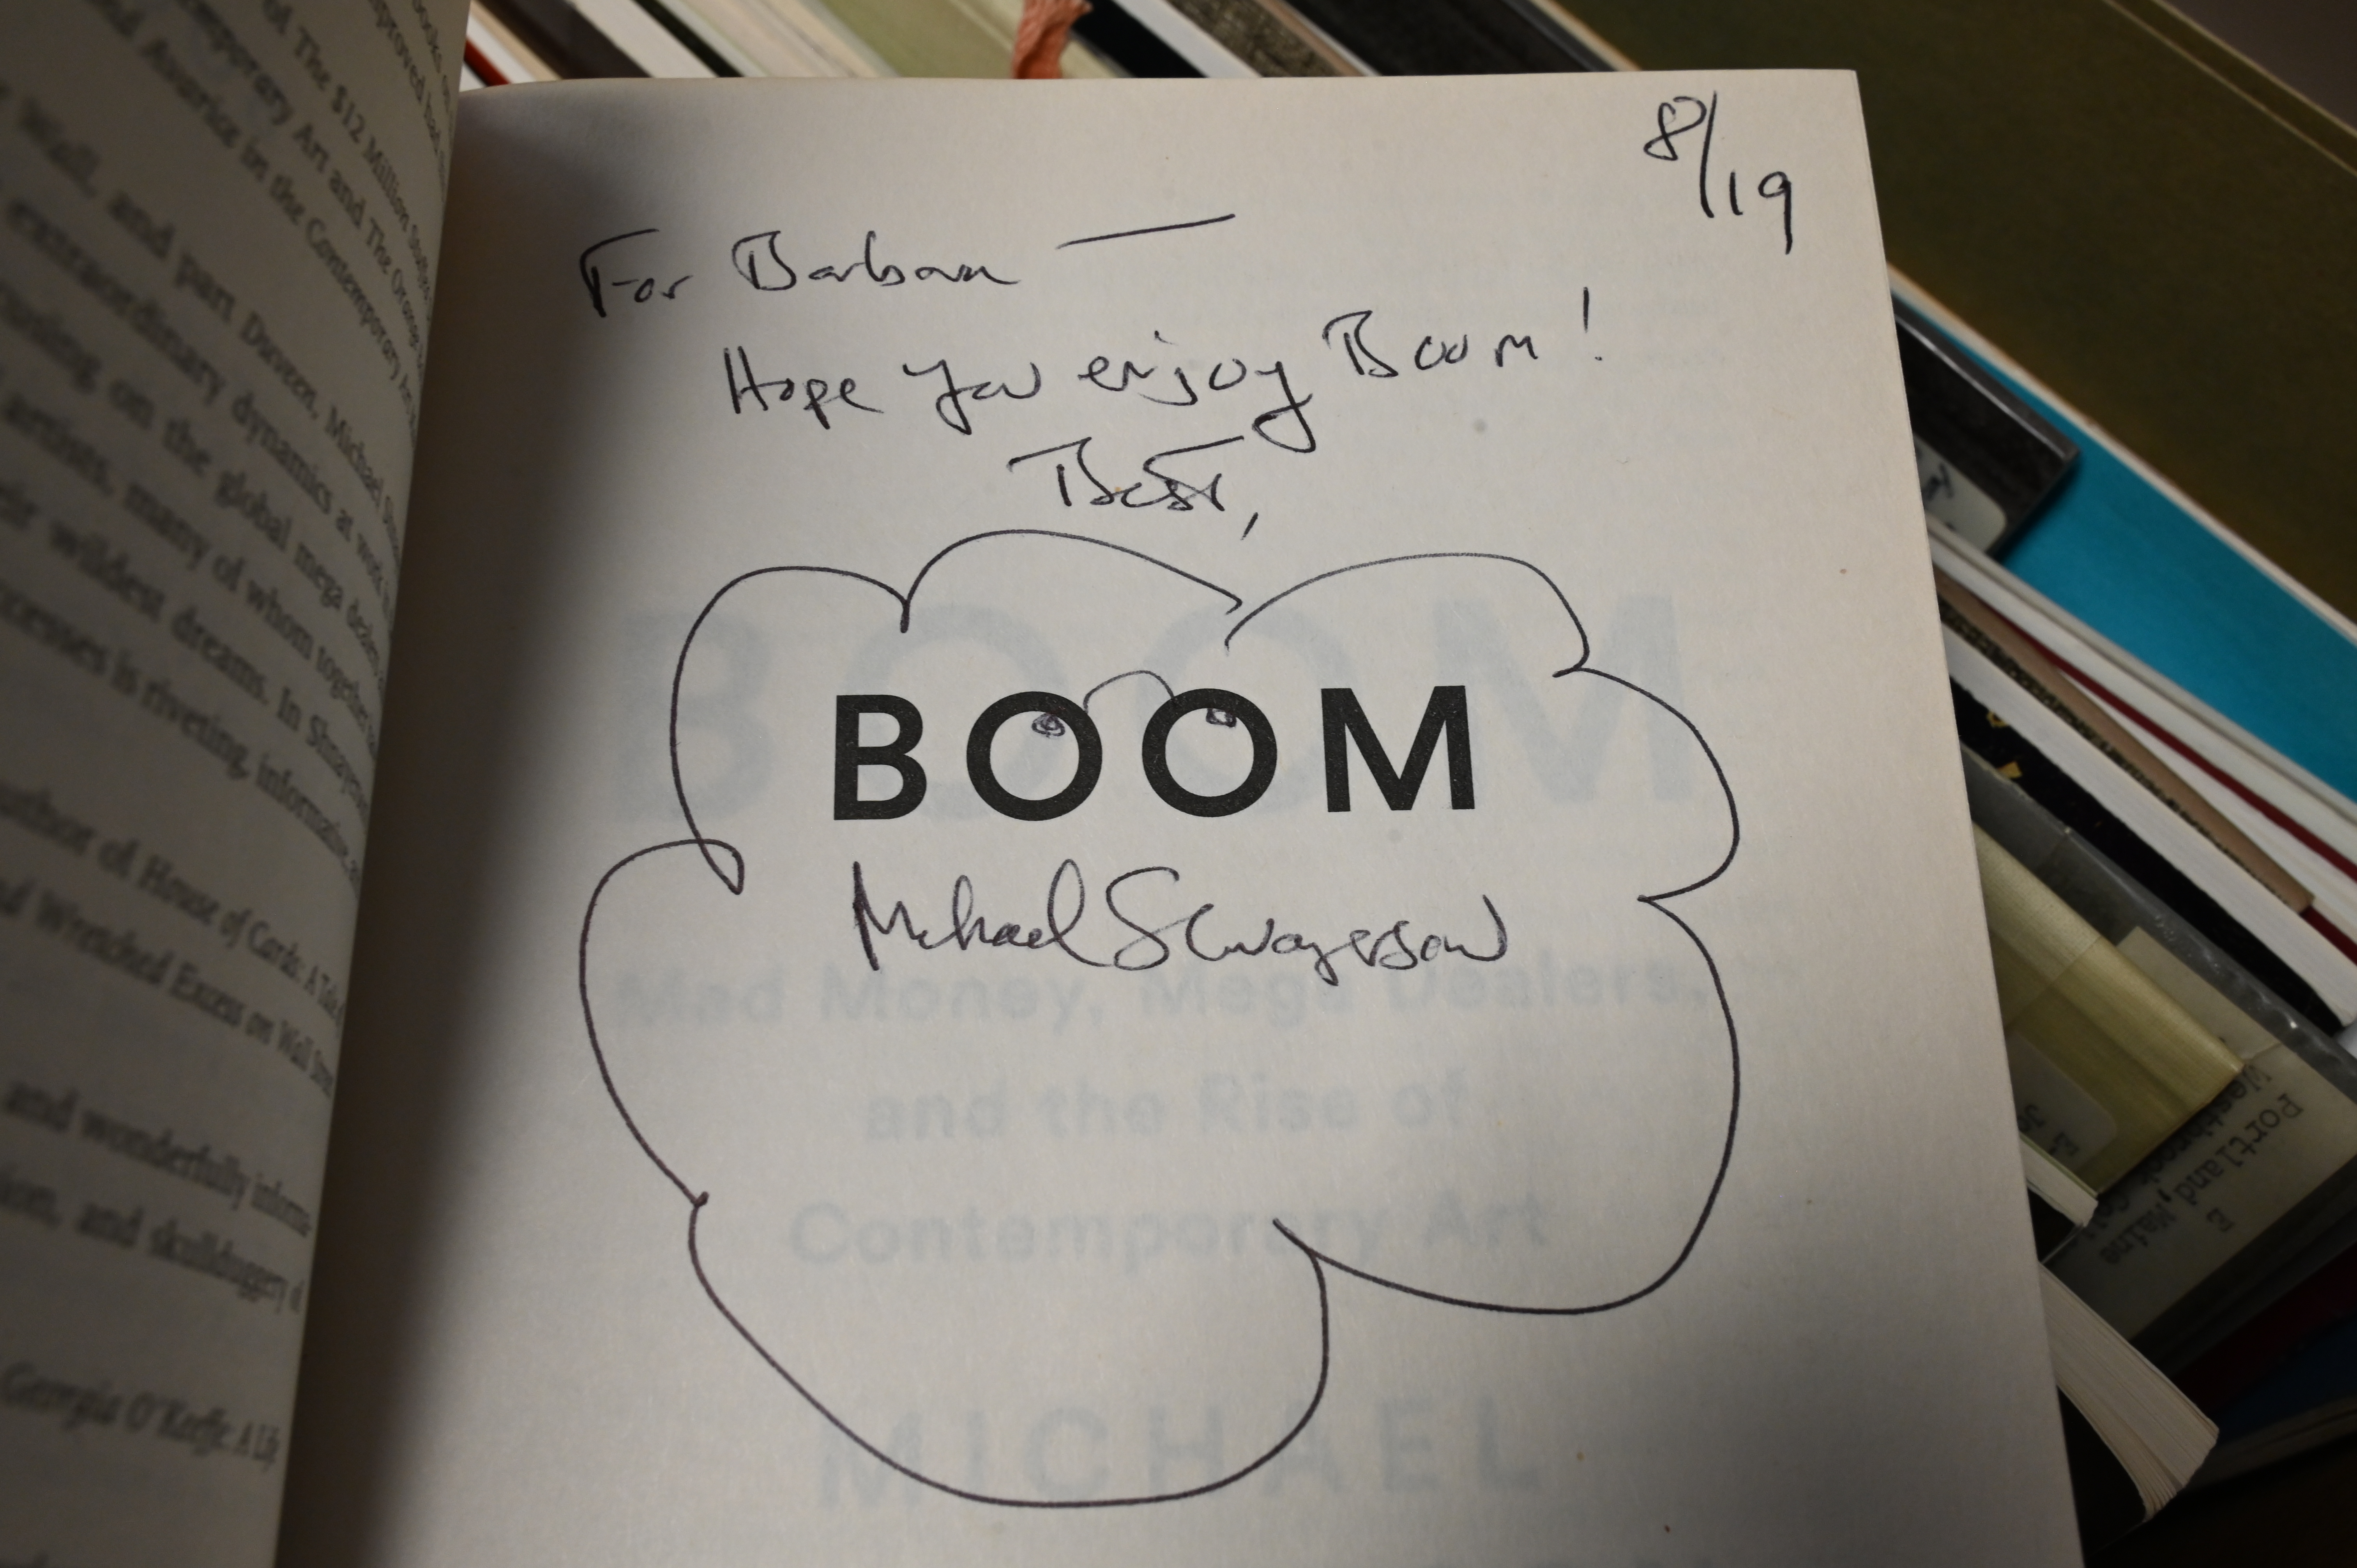 ooks. S
mproved had th
of The $12 Million Stuffed
temporary Art and The Orange
nd Avarice in the Contemporary Art
Wall, and part Duveen, Michael Sh
extraordinary dynamics at work
cusing on the global mega dealers
artists, many of whom together
eir wildest dreams. In Shnayers
ccesses is riveting, informative, a
author of House of Cards: A Tale
nd Wretched Excess on Wall Street
and wonderfully inform
ion, and skullduggery of
Georgia O'Keeffe: A Life
8/19
For Barbara —
Hope you enjoy Boom!
Best,
BOOM
Michael Shnayerson
BOOM
Mad Money, Mega Dealers,
and the Rise of
Contemporary Art
MICHAEL
Portland, Maine